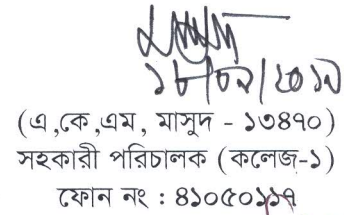 ১৮/০৯/২০১৯
(এ,কে,এম, মাসুদ - ১৩৪৭০)
সহকারী পরিচালক (কলেজ-১)
ফোন নং : ৪১০৫০১১৭